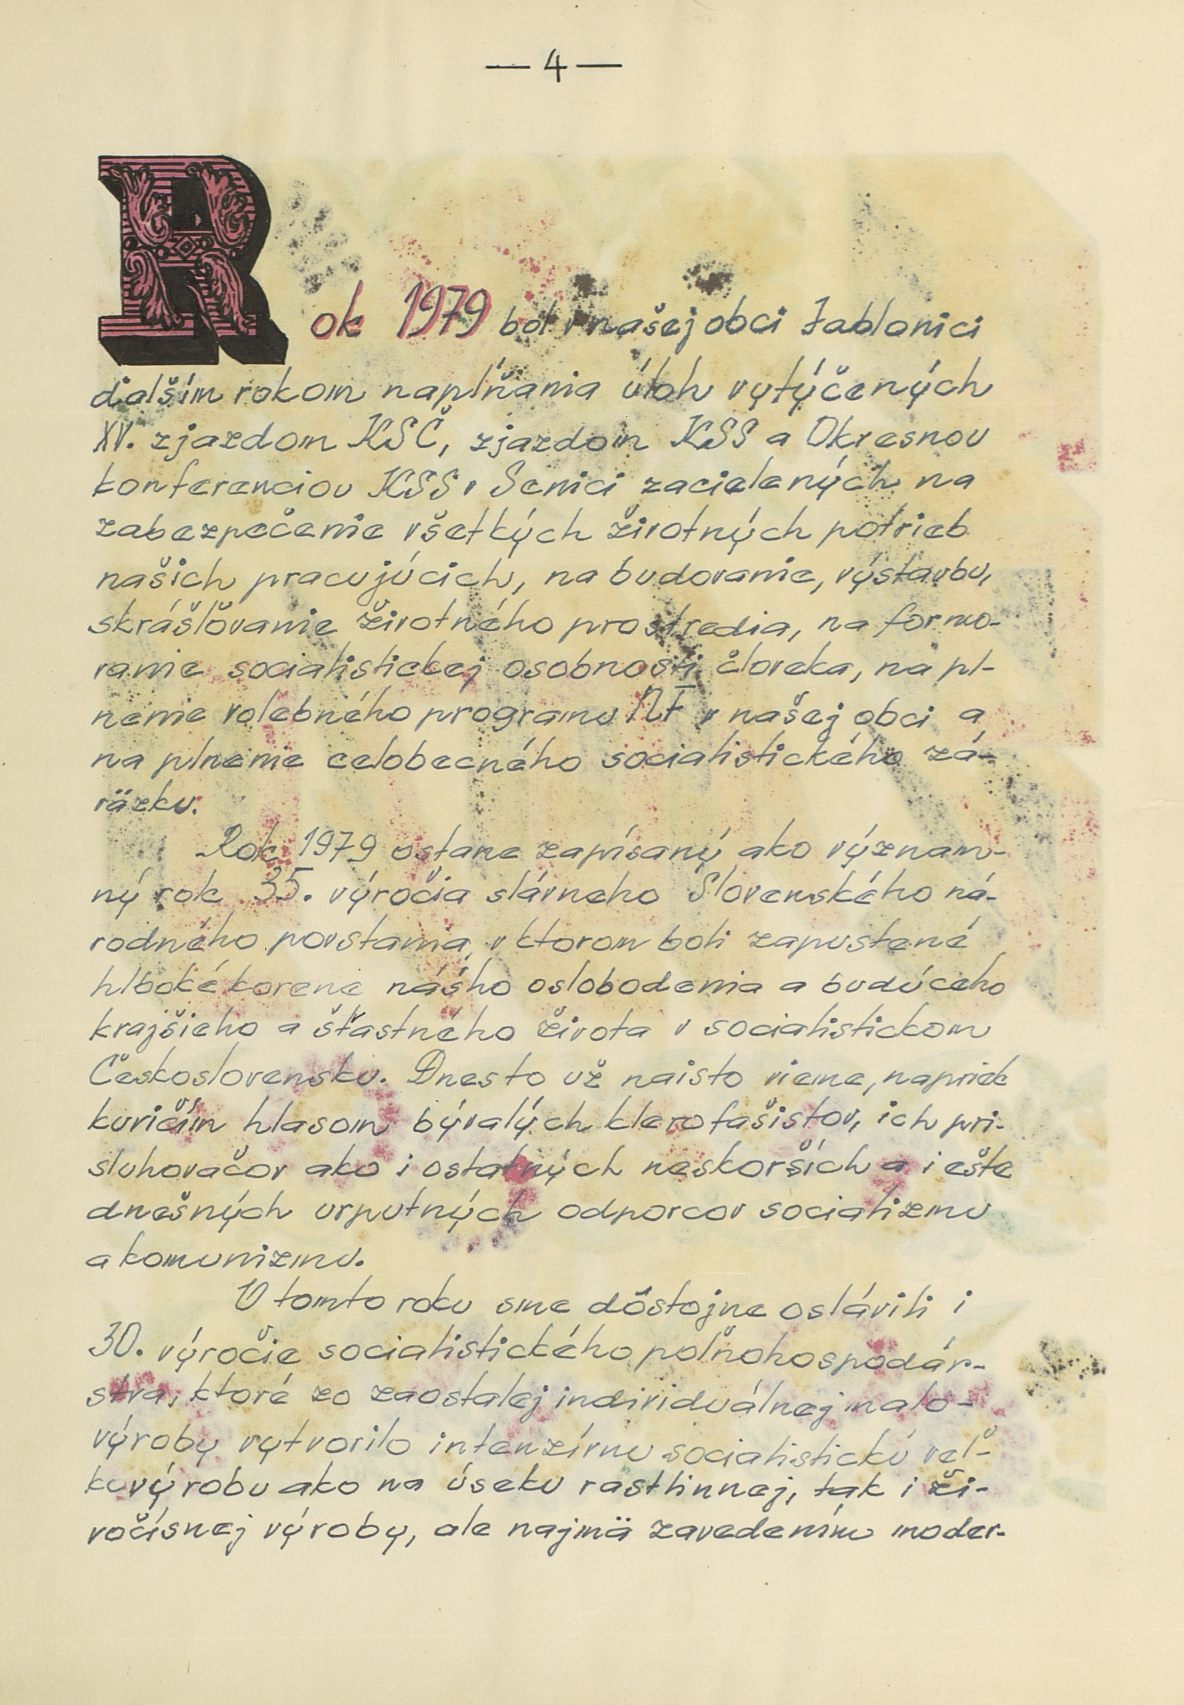 — 4 —
Rok 1979 bol v našej obci Jablonici
ďalším rokom naplňania úloh vytýčených
XV. zjazdom KSČ, zjazdom KSS a Okresnou
konferenciou KSS v Senici zacielených na
zabezpečenie všetkých životných potrieb
našich pracujúcich, na budovanie, výstavbu,
skrášľovanie životného prostredia, na formo-
vanie socialistickej osobnosti človeka, na pl-
nenie volebného programu NF v našej obci a
na plnenie celobecného socialistického zá-
väzku.
Rok 1979 ostane zapísaný ako význam-
ný rok 35. výročia slávneho Slovenského ná-
rodného povstania, v ktorom boli zapustené
hlboké korene nášho oslobodenia a budúceho
krajšieho a šťastného života v socialistickom
Československu. Dnes to už naisto vieme, napriek
kuričím hlasom bývalých klerofašistov, ich pri-
sluhovačov ako i ostatných neskorších a i ešte
dnešných urputných odporcov socializmu
a komunizmu.
V tomto roku sme dôstojne oslávili i
30. výročie socialistického poľnohospodár-
stva, ktoré zo zaostalej individuálnej malo-
výroby vytvorilo intenzívnu socialistickú veľ-
kovýrobu ako na úseku rastlinnej, tak i ži-
vočísnej výroby, ale najmä zavedením moder-